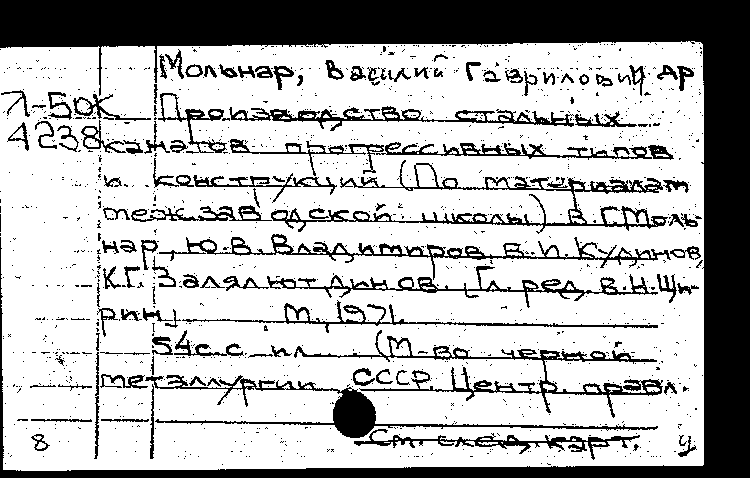 Мольнар, Василий Гаврилович и др
Л-50К Производство стальных
4238 канатов прогрессивных типов
и конструкций. (По материалам
меж.заводской школы) В.Г.Моль-
нар, Ю.В.Владимиров, В.И.Кудинов,
К.Г.Залялютдинов. [Гл. ред. В.Н.Щи-
рин] М., 1971.
54с. с ил. (М-во черной
металлургии СССР. Центр. правл.
См. след. карт.
8 У